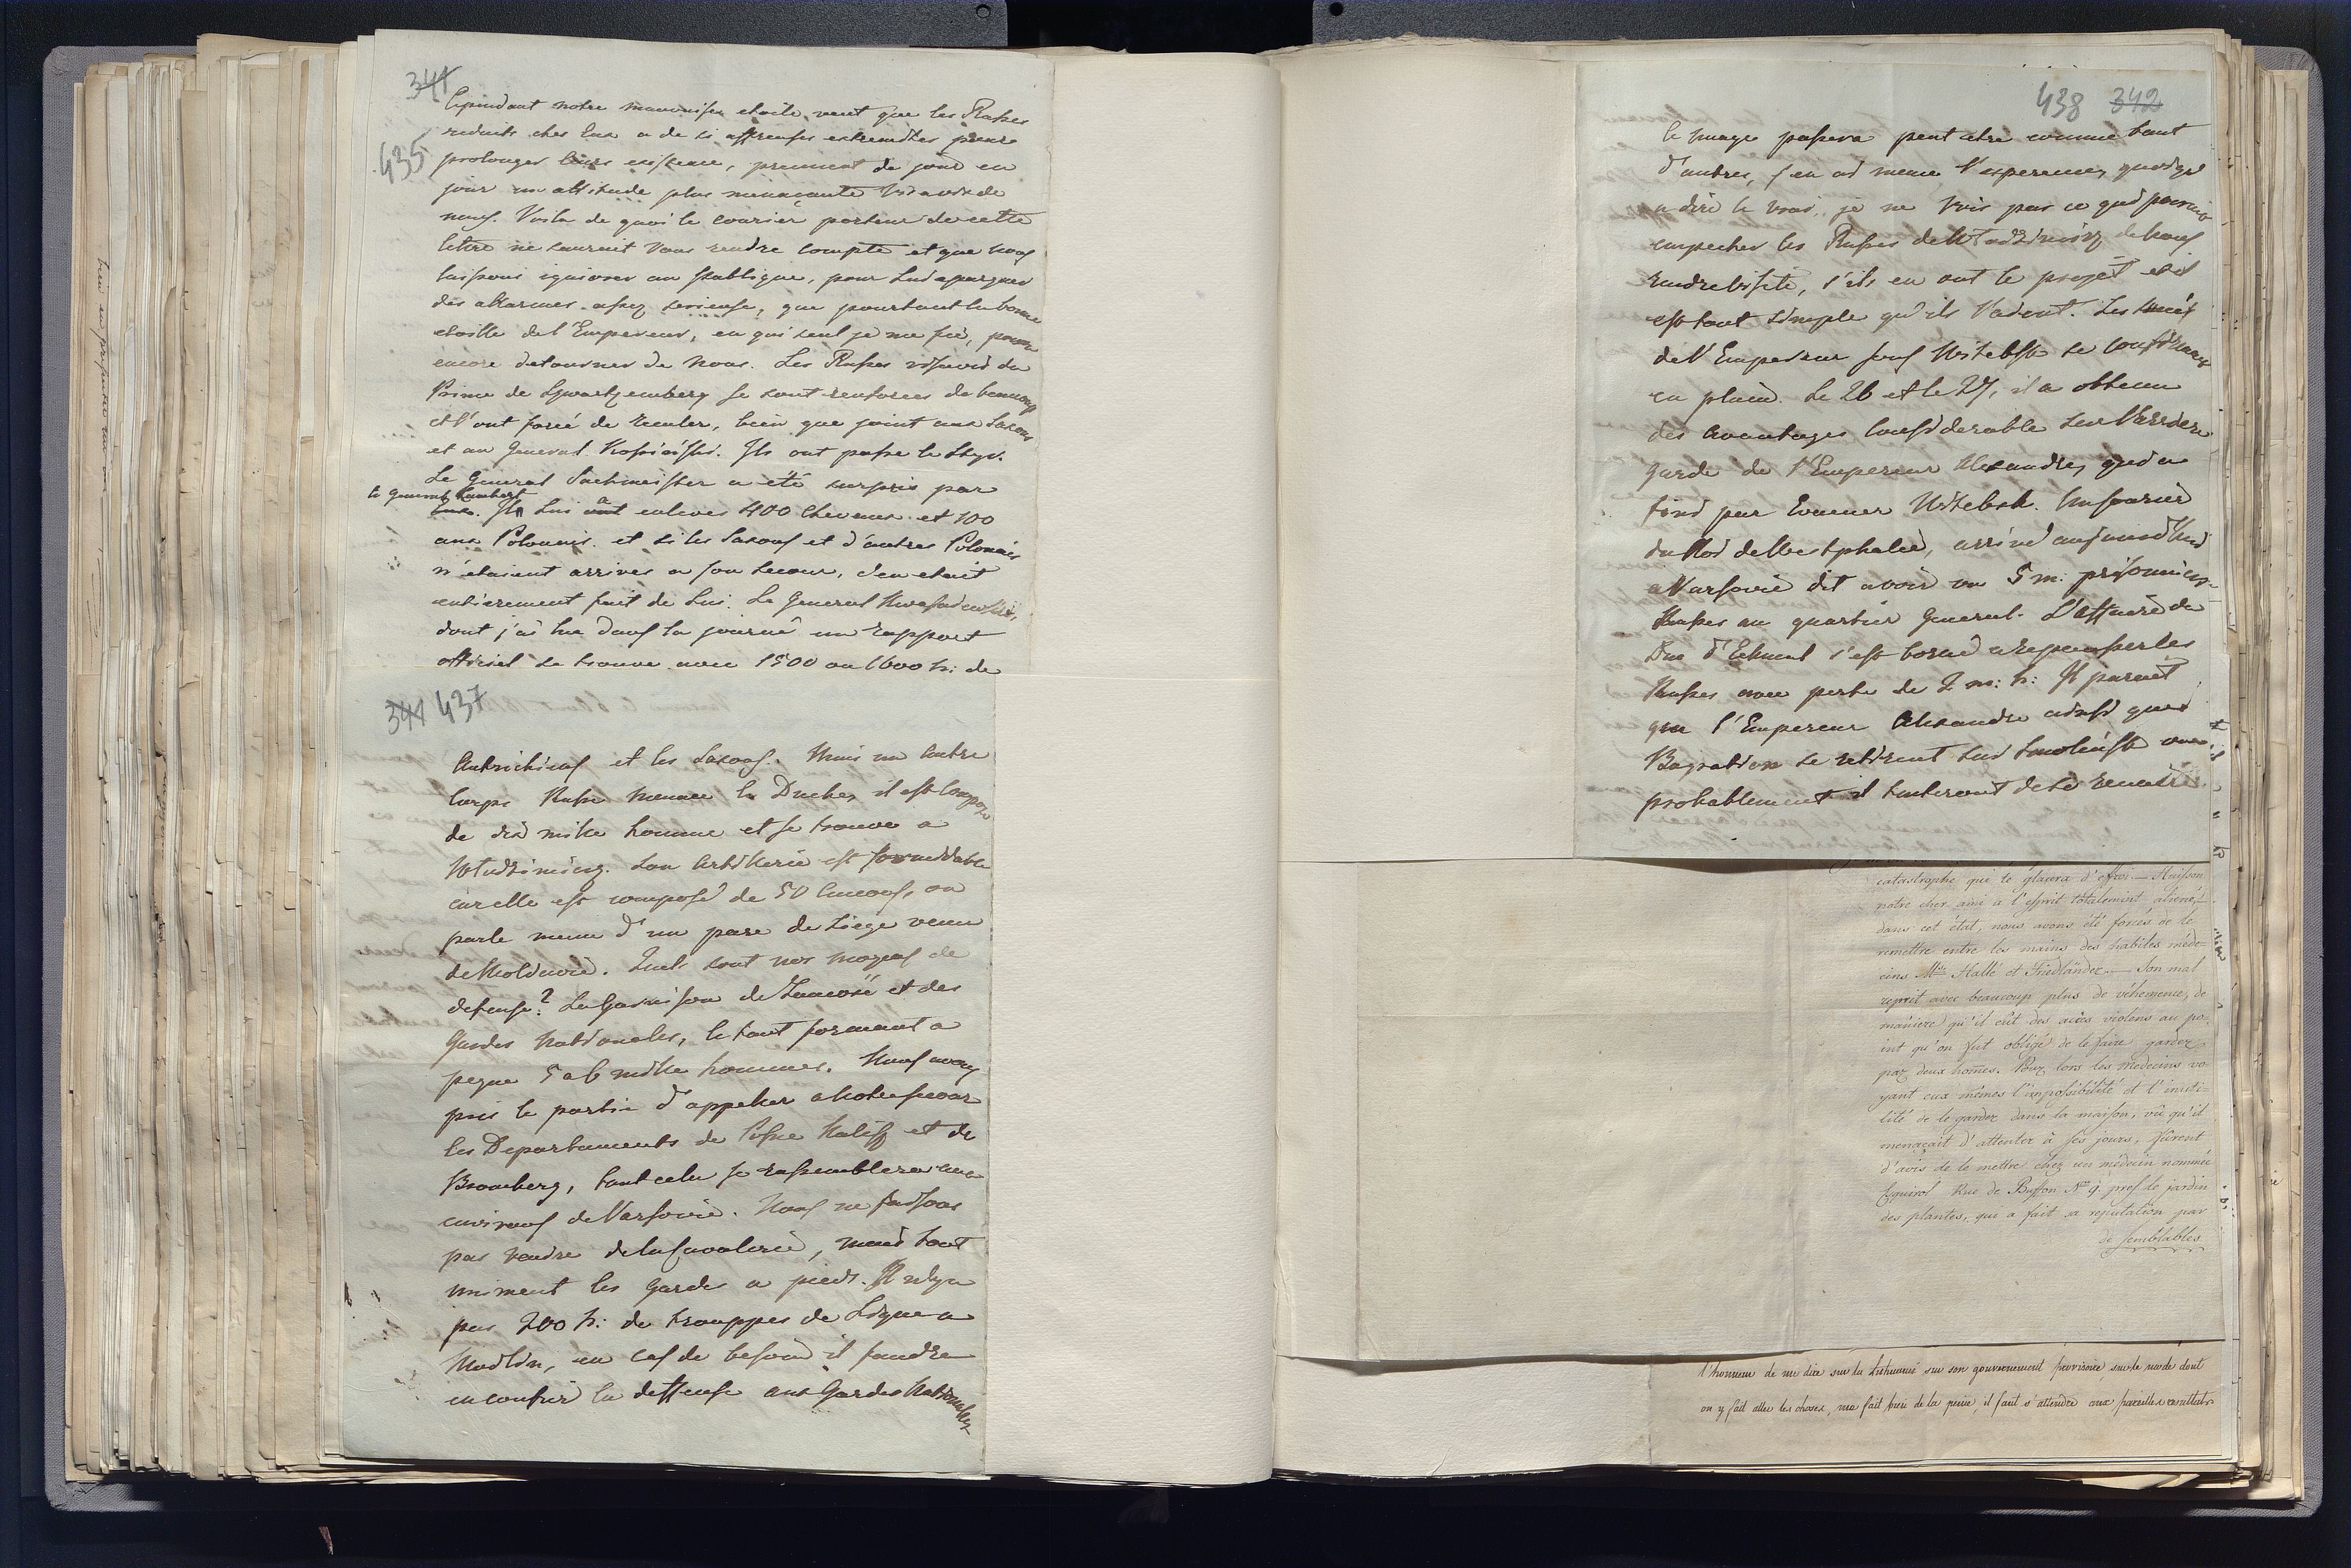 341
435
Cependant notre mauvaise etoile veut que les Russes
reduits chez Eux a de si affreuses extremites pour
prolonger leurs existence, prennent de jour en
jour un attitude plus menaçante vis a vis de
nous. Voila de quoi le courier porteur de cette
lettre ne saurait vous rendre compte et que nous
laissons ignorer au publique, pour Lui epargner
des allarmes assez serieuse, que pourtant la bonne
etoille de l'Empereur, en qui seul je me fie, pourra
encore detourner de nous. Les Russes vis a vis du
Prince de Schwartzemberg se sont renforces de beaucoup
et l'ont forcé de reculer, bien que joint aux Saxons
et au General Kosinski. Ils ont passe le Styr.
Le General a été surpris par
le General Lambert
Eux. Il Lui a ont enlever 400 Chevaux et 100
aux Polonais et si les Saxons et d'autres Polonais
n'etaient arrives a son secour, s'en etait
entierement fait de Lui. Le General
dont j'ai lu dans la journé un rapport
officiel se trouve avec 1500 ou 1600 h: de
341 437
Autrichiens et les Saxons. Mais un autre
Corps Russe menace le Duché, il est composé
de dix mille homme et se trouve a
Wlodzimirz. Son Artillerie est formidable
car elle est composé de 50 Canons, on
parle meme d'un parc de siege venu
de Moldavie. Quels sont nos moyens de
defense? La Garnison de Zamość et des
Gardes Nationales, le tout formant a
peyne 5 a 6 mille hommes. Nous avons
pris le partie d'appeller a Notre secour
les Departaments de Posne Kalisz et de
Bromberg, tout cela se rassemblera aux
environs de Varsovie. Nous ne faisons
pas venir de la Cavalerie, mais tout
uniment les garde a pieds. Il n'y a
pas 200 h: de trouppes de Ligne a
Modlin, en cas de besoin il faudra
en confier la deffense aux Gardes Nationales
438 342
le nuage passera peut etre comme tant
d'autres, j'en ai meme l'esperance, quoique
a dire le vrai, je ne vois pas ce qui pourrait
empecher les Russes de Wlodzimirz de nous
rendre visite, s'ils en ont le projet et il
est tout simple qu'ils l'aient. Les succès
de l'Empereur sous Witebsk se confirment
en plein. Le 26 et le 27, il a obtenu
des avantages considerable sur l'arriere
garde de l'Empereur Alexandre, qui a
fini par Evacuer Witebsk. Un courier
du Roi de Westphalie, arrivé aujourdhui
a Varsovie dit avoir vu 5 m: prisonniers
Russes au quartier General. L'affaire du
Duc d'Eckmul s'est borné a repousser les
Russes avec perte de 2 m: h: Il parait
que l'Empereur Alexandre ainsi que
Bagration se retirent sur Smolensk ou
probablement il tenteront de se reunir.
catastrophe qui te glacera d'effroi. —
notre cher ami a l'esprit totalement aliené,
dans cet état, nous avons été forcés de le
remettre entre les mains des habiles méde-
cins Mrs Hallé et Friedländer. — Son mal
reprit avec beaucoup plus de véhemence, de
maniere qu'il eût des accès violens au po-
int qu'on fut obligé de le faire garder
par deux homes. Pour lors les medecins vo-
yant eux mêmes l'impossibilité et l'inuti-
lité de le garder dans la maison, vû qu'il
menaçait d'attenter à ses jours, furent
d'avis de le mettre chez un médecin nommé
Esquirol Rue de Buffon Nro 9. près le jardin
des plantes, qui a fait sa reputation par
de semblables
l'honneur de me dire sur la Lithuanie sur son gouvernement provisoire, sur le mode dont
on y fait aller les choses, m'a fait bien de la peine, il faut s'attendre aux pareilles resultats